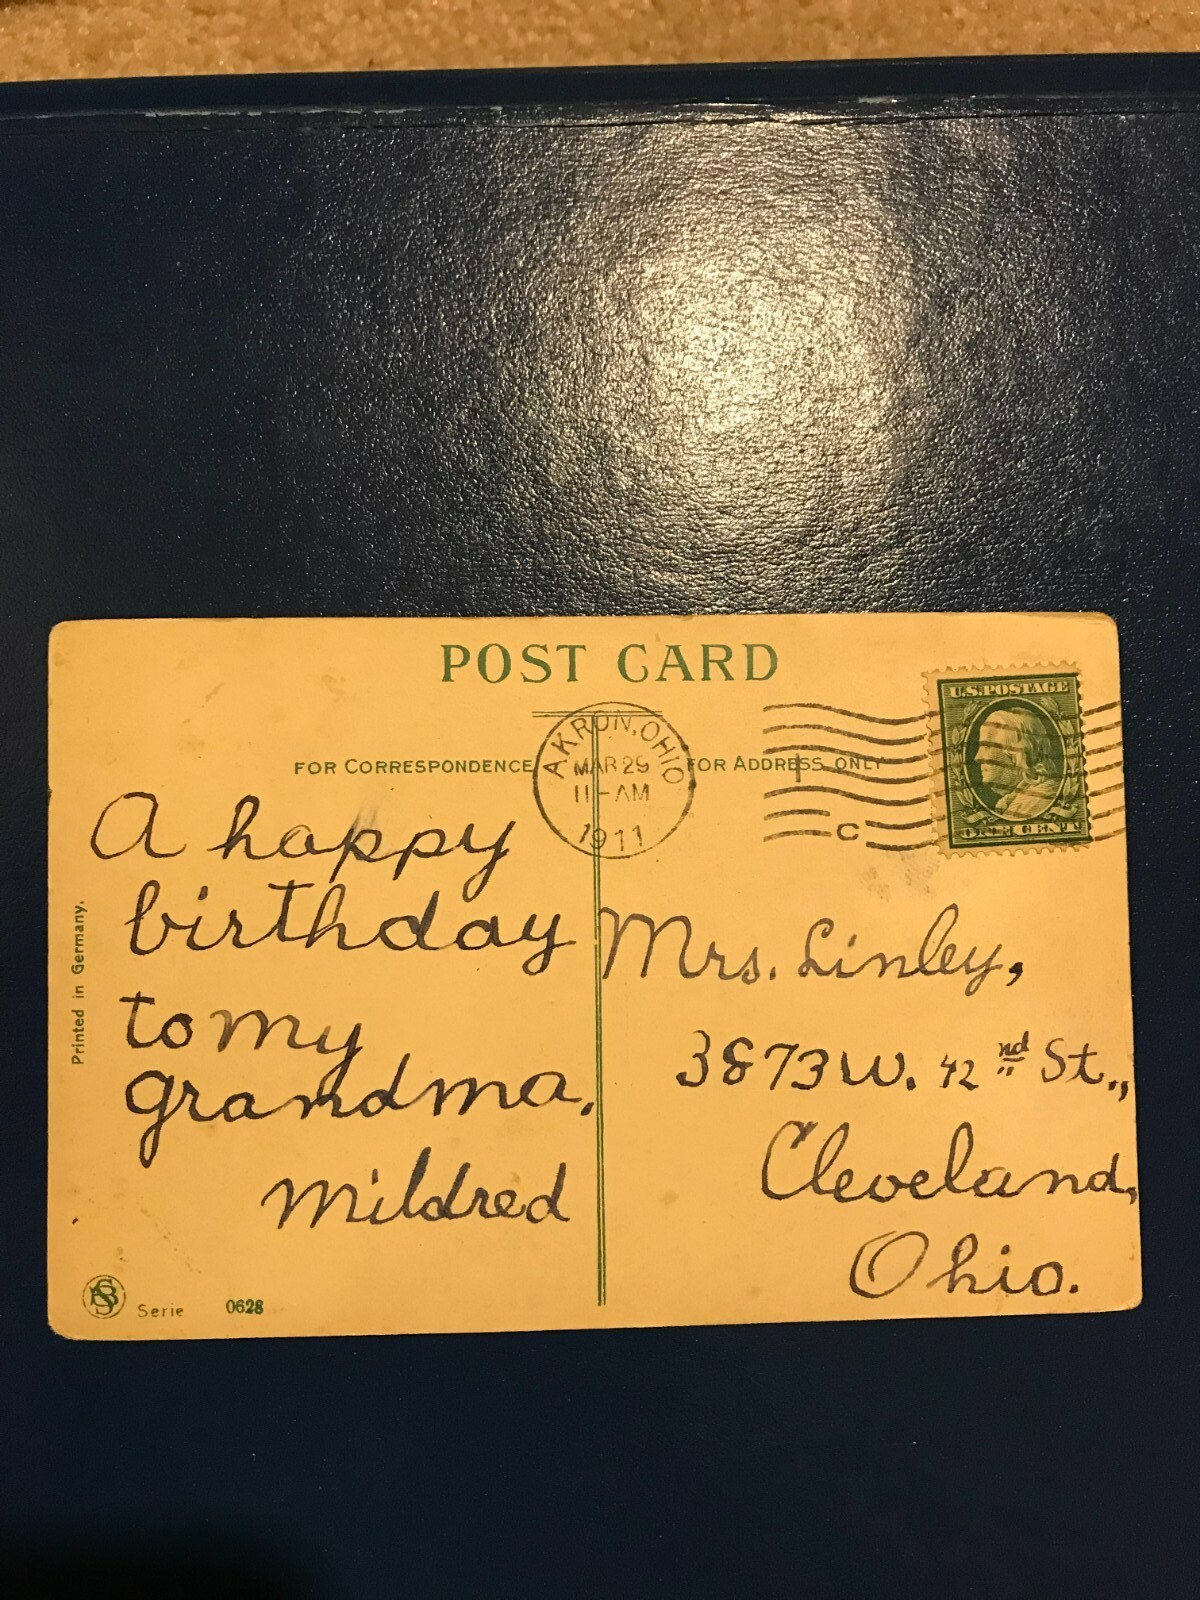 POST CARD
FOR CORRESPONDENCE
FOR ADDRESS ONLY
AKRON, OHIO
MAR 29
11-AM
1911
C
U.S. POSTAGE
ONE CENT
A happy
birthday
to my
grandma.
Mildred
Mrs. Linley,
3873 W. 42 nd St.,
Cleveland,
Ohio.
Printed in Germany.
Serie 0628